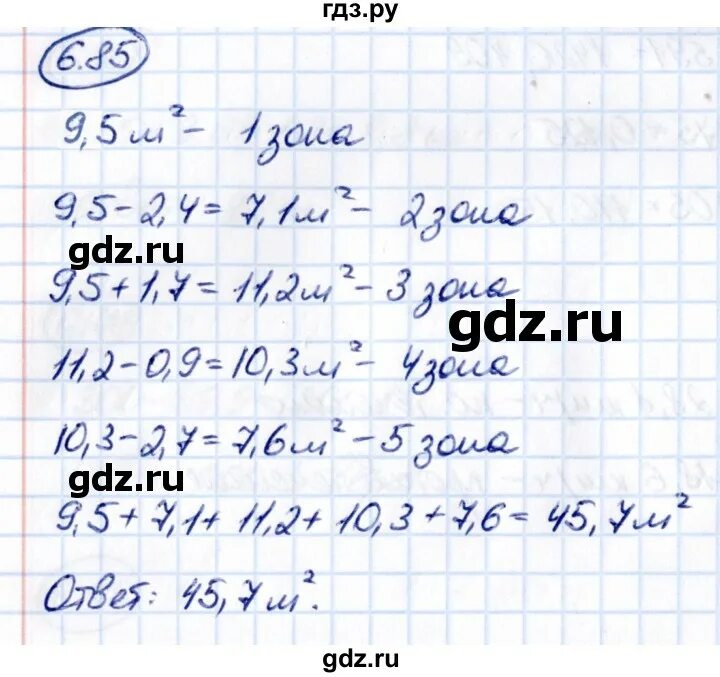 гдз.ру
6.85
9,5 м² - 1 зона
9,5 - 2,4 = 7,1 м² - 2 зона
gdz.ru
9,5 + 1,7 = 11,2 м² - 3 зона
gdz.ru
11,2 - 0,9 = 10,3 м² - 4 зона
10,3 - 2,7 = 7,6 м² - 5 зона
gdz.ru
9,5 + 7,1 + 11,2 + 10,3 + 7,6 = 45,7 м²
Ответ: 45,7 м².
gdz.ru